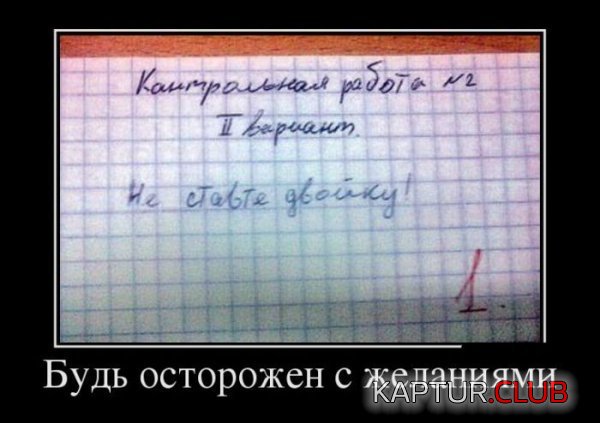 Контрольная работа №2
II вариант
Не ставте двойку!
1.
Будь осторожен с желаниями
KAPTUR.CLUB